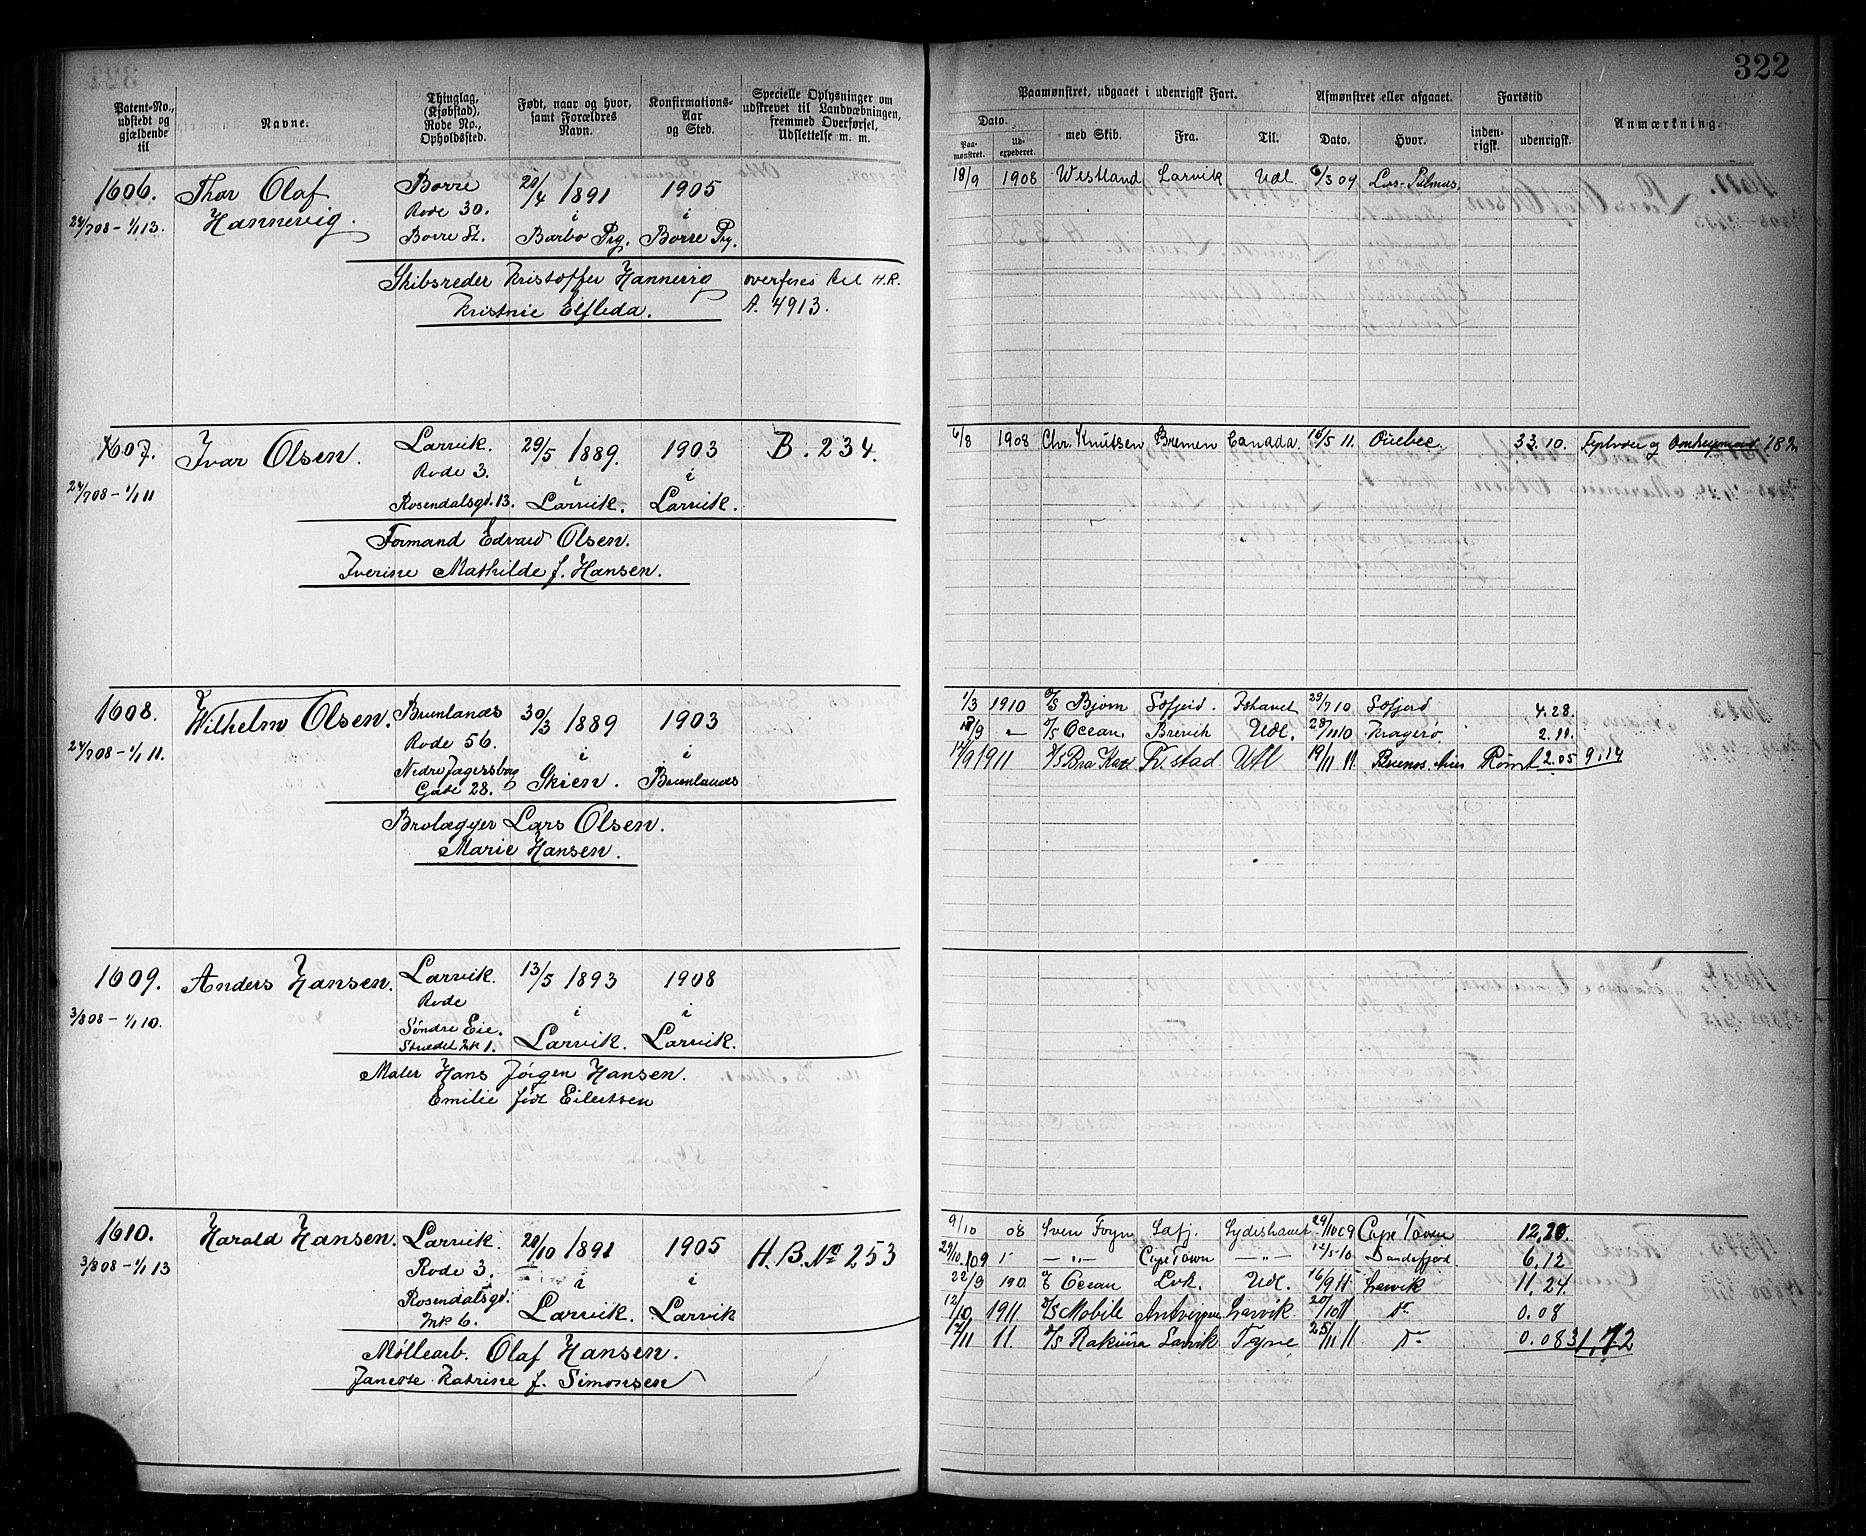 322
Patent-No., udstedt og gjældende til
Navne.
Thinglag, (Kjøbstad), Rode No., Opholdssted.
Født, naar og hvor, samt Forældres Navn.
Konfirmations-Aar og Sted.
Specielle Oplysninger om udskrevet til Landvæbningen, fremmed Overførsel, Udslettelse m. m.
Paamønstret, udgaaet i udenrigsk Fart.
Dato.
Paa-mønstret.
Ud-expederet.
med Skib.
Fra.
Til.
Afmønstret eller afgaaet.
Dato.
Hvor.
Fartstid
inden-rigsk.
udenrigsk.
Anmærkning.
1606. Thor Olaf Borre 20/4 1891 1905
Hannevig. Rode 30. i i
24/708 – 1/1 13. Borre St. Barbo Prg. Borre Prg.
Skibsreder Kristoffer Hannevig overføres til H.R.
Kristine Elfleda. A. 4913.
18/9 1908 Westland Larvik Udl. 6/3 09 Las-Palmas.
1607. Ivar Olsen. Larvik. 29/5 1889. 1903 B. 234.
Rode 3. i i
24/708 – 1/1 11 Rosendalsgd. 13. Larvik. Larvik.
Formand Edvard Olsen.
Iverine Mathilde f. Hansen.
6/8 1908 Chr. Knutsen Bremen Canada. 16/5 11. Quebec. 33.10.
1608. Wilhelm Olsen. Brunlanæs 30/3 1889 1903
Rode 56. i i
24/708 – 1/1 11. Nedre Jegersborg Gade 28. Skien. Brunlanæs
Brolægger Lars Olsen.
Marie Hansen.
1/3 1910 Bjørn Ishavet 29/7 10 4.28.
/9 – Ocean Brevik Udl. 28/11 10 Kragerø. 2.11.
14/9 1911 Bra Kar Fr.stad Udl 19/11 11. Buenos. Aires Rømt 2.05 9.14
1609. Anders Hansen. Larvik. 13/5 1893 1908
Rode i i
3/808 – 1/1 10. Søndre Eie. Larvik. Larvik.
Strædet No 1.
Maler Hans Jørgen Hansen.
Emilie født Eilertsen
1610. Harald Hansen. Larvik. 20/10 1891 1905 H. B. No 253
Rode 3. i i
3/808 – 1/1 13 Rosendalsgd. No 6. Larvik. Larvik
Møllearb. Olaf Hansen.
Janette Katrine f. Simonsen
9/10 08 Sven Foyn Safj. Sydishavet 29/10 09 Cape Town 12,20.
29/10. 09 – „ – Cape Town – „ – 12/5 10 Sandefjord. 6,12
22/9 190. Ocean Lvk. Udl. 16/9 11 Larvik 11,24.
12/10 1911 Mobile Antwerpen Larvik 20/10 11 Do 0.08
14/11 11. Rakiura Larvik Tyne 25/11 11 Do 0.08 31.12